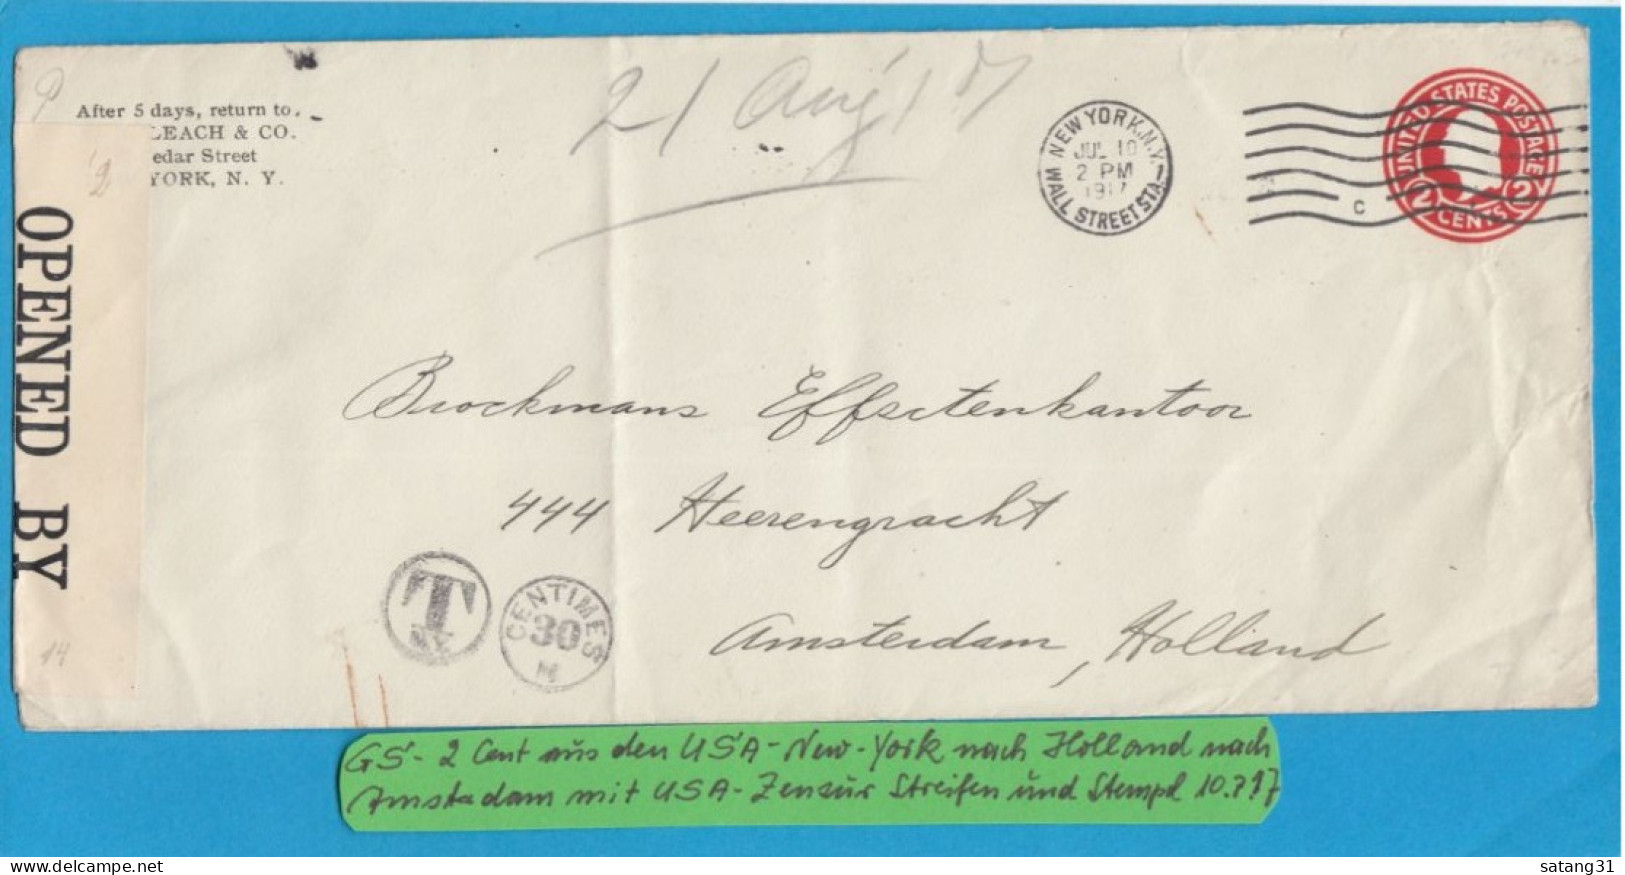 21 Aug 17
After 5 days, return to
LEACH & CO.
edar Street
YORK, N. Y.
2
OPENED BY
14
NEW YORK, N.Y.
JUL 10
2 PM
1917
WALL STREET STA.
C
UNITED STATES POSTAGE
2 CENTS 2
Brockmans Effectenkantoor
444 Heerengracht
Amsterdam, Holland
T
CENTIMES
30
GS - 2 Cent aus den USA - New-York nach Holland nach
Amstadam mit USA - Zensur Streifen und Stempel 10.7.17
www.delcampe.net
satang31